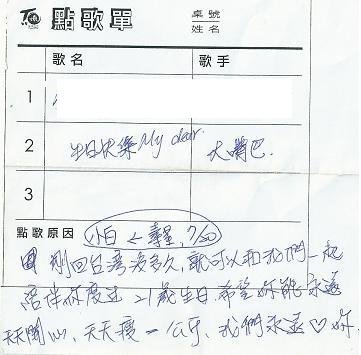 點歌單
桌號
姓名
歌名 歌手
1
2 生日快樂 My dear. 大嘴巴.
3
點歌原因 小白 ← 壽星, 7/30
剛回台灣沒多久, 就可以和我們一起
陪伴你度过 21歲生日 希望妳能永遠
天天開心, 天天瘦一公斤, 我們永遠♡妳.